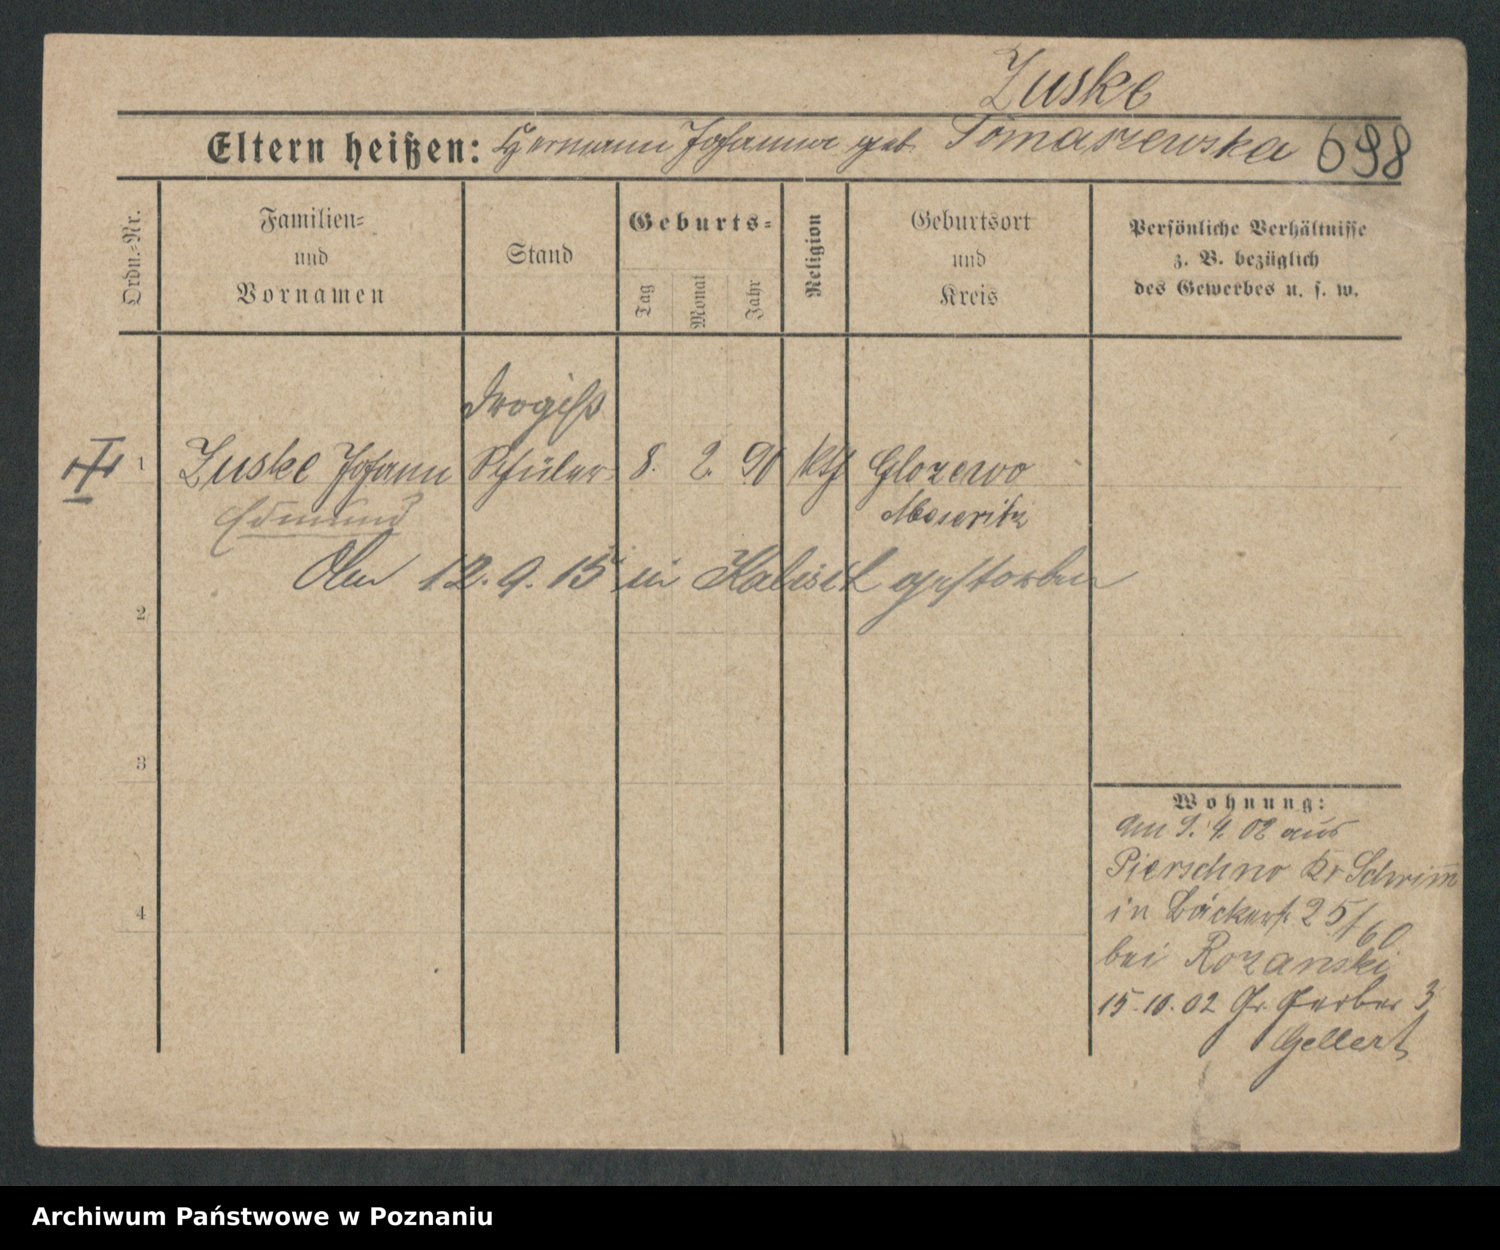 Zuske
Eltern heißen: Hermann Johanna geb. Tomaszewska 698
Ordn.-Nr.
Familien-
und
Vornamen
Stand
Geburts-
Tag
Monat
Jahr
Religion
Geburtsort
und
Kreis
Persönliche Verhältnisse
z. B. bezüglich
des Gewerbes u. s. w.
Drogist
1 Zuske Johann Schüler 8. 2. 90 kth Glozewo
Edmund Meseritz
Am 12. 9. 15 in Kalisch gestorben
2
3
4
Wohnung:
am 9. 4. 02 aus
Pierschno Kr Schrimm
in Bäckerst. 25/60
bei Rozanski
15. 10. 02 Gr. Gerber 3
Gellert
Archiwum Państwowe w Poznaniu